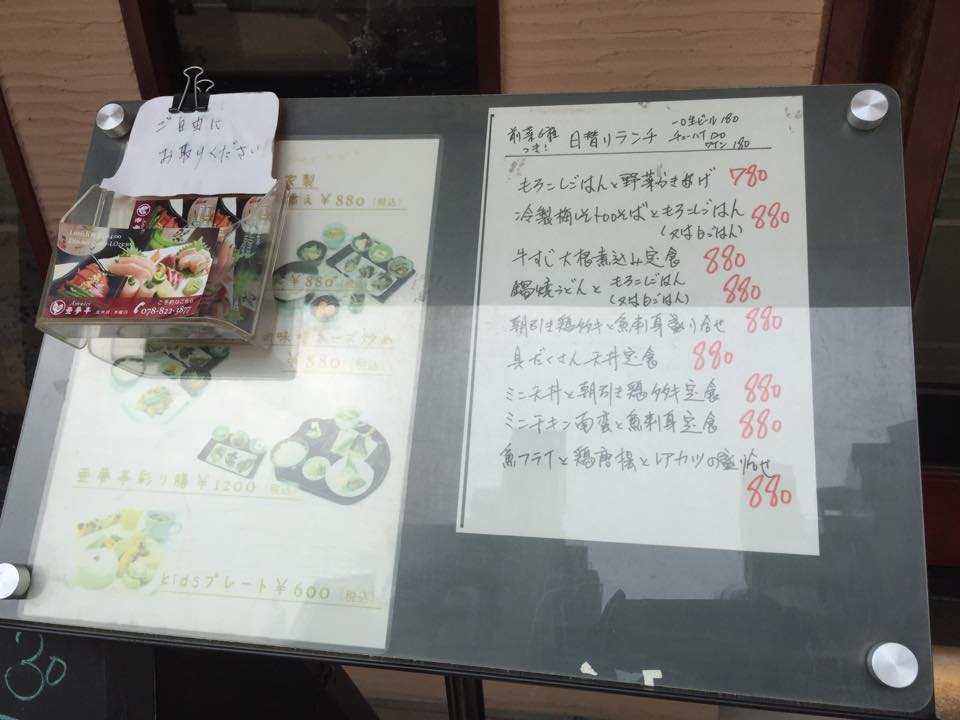 ご自由に
お取りください
Lunch
Dinner
亜夢亭
ご予約はこちら
078-822-3877
製
え ¥880 (税込)
¥880
炒め
¥880 (税込)
亜夢亭彩り膳 ¥1200 (税込)
kidsプレート ¥600 (税込)
30
前菜6種
つき!
日替りランチ
生ビール 180
チューハイ 100
ワイン 180
もろこしごはんと野菜かきあげ 780
冷製梅しそtooそばともろこしごはん 880
(又は白ごはん)
牛すじ大根煮込み定食 880
鍋焼うどんともろこしごはん 880
(又は白ごはん)
朝引き鶏タタキと魚刺身盛り合せ 880
具だくさん天丼定食 880
ミニ天丼と朝引き鶏タタキ定食 880
ミニチキン南蛮と魚刺身定食 880
魚フライと鶏唐揚とレアカツの盛り合せ
880